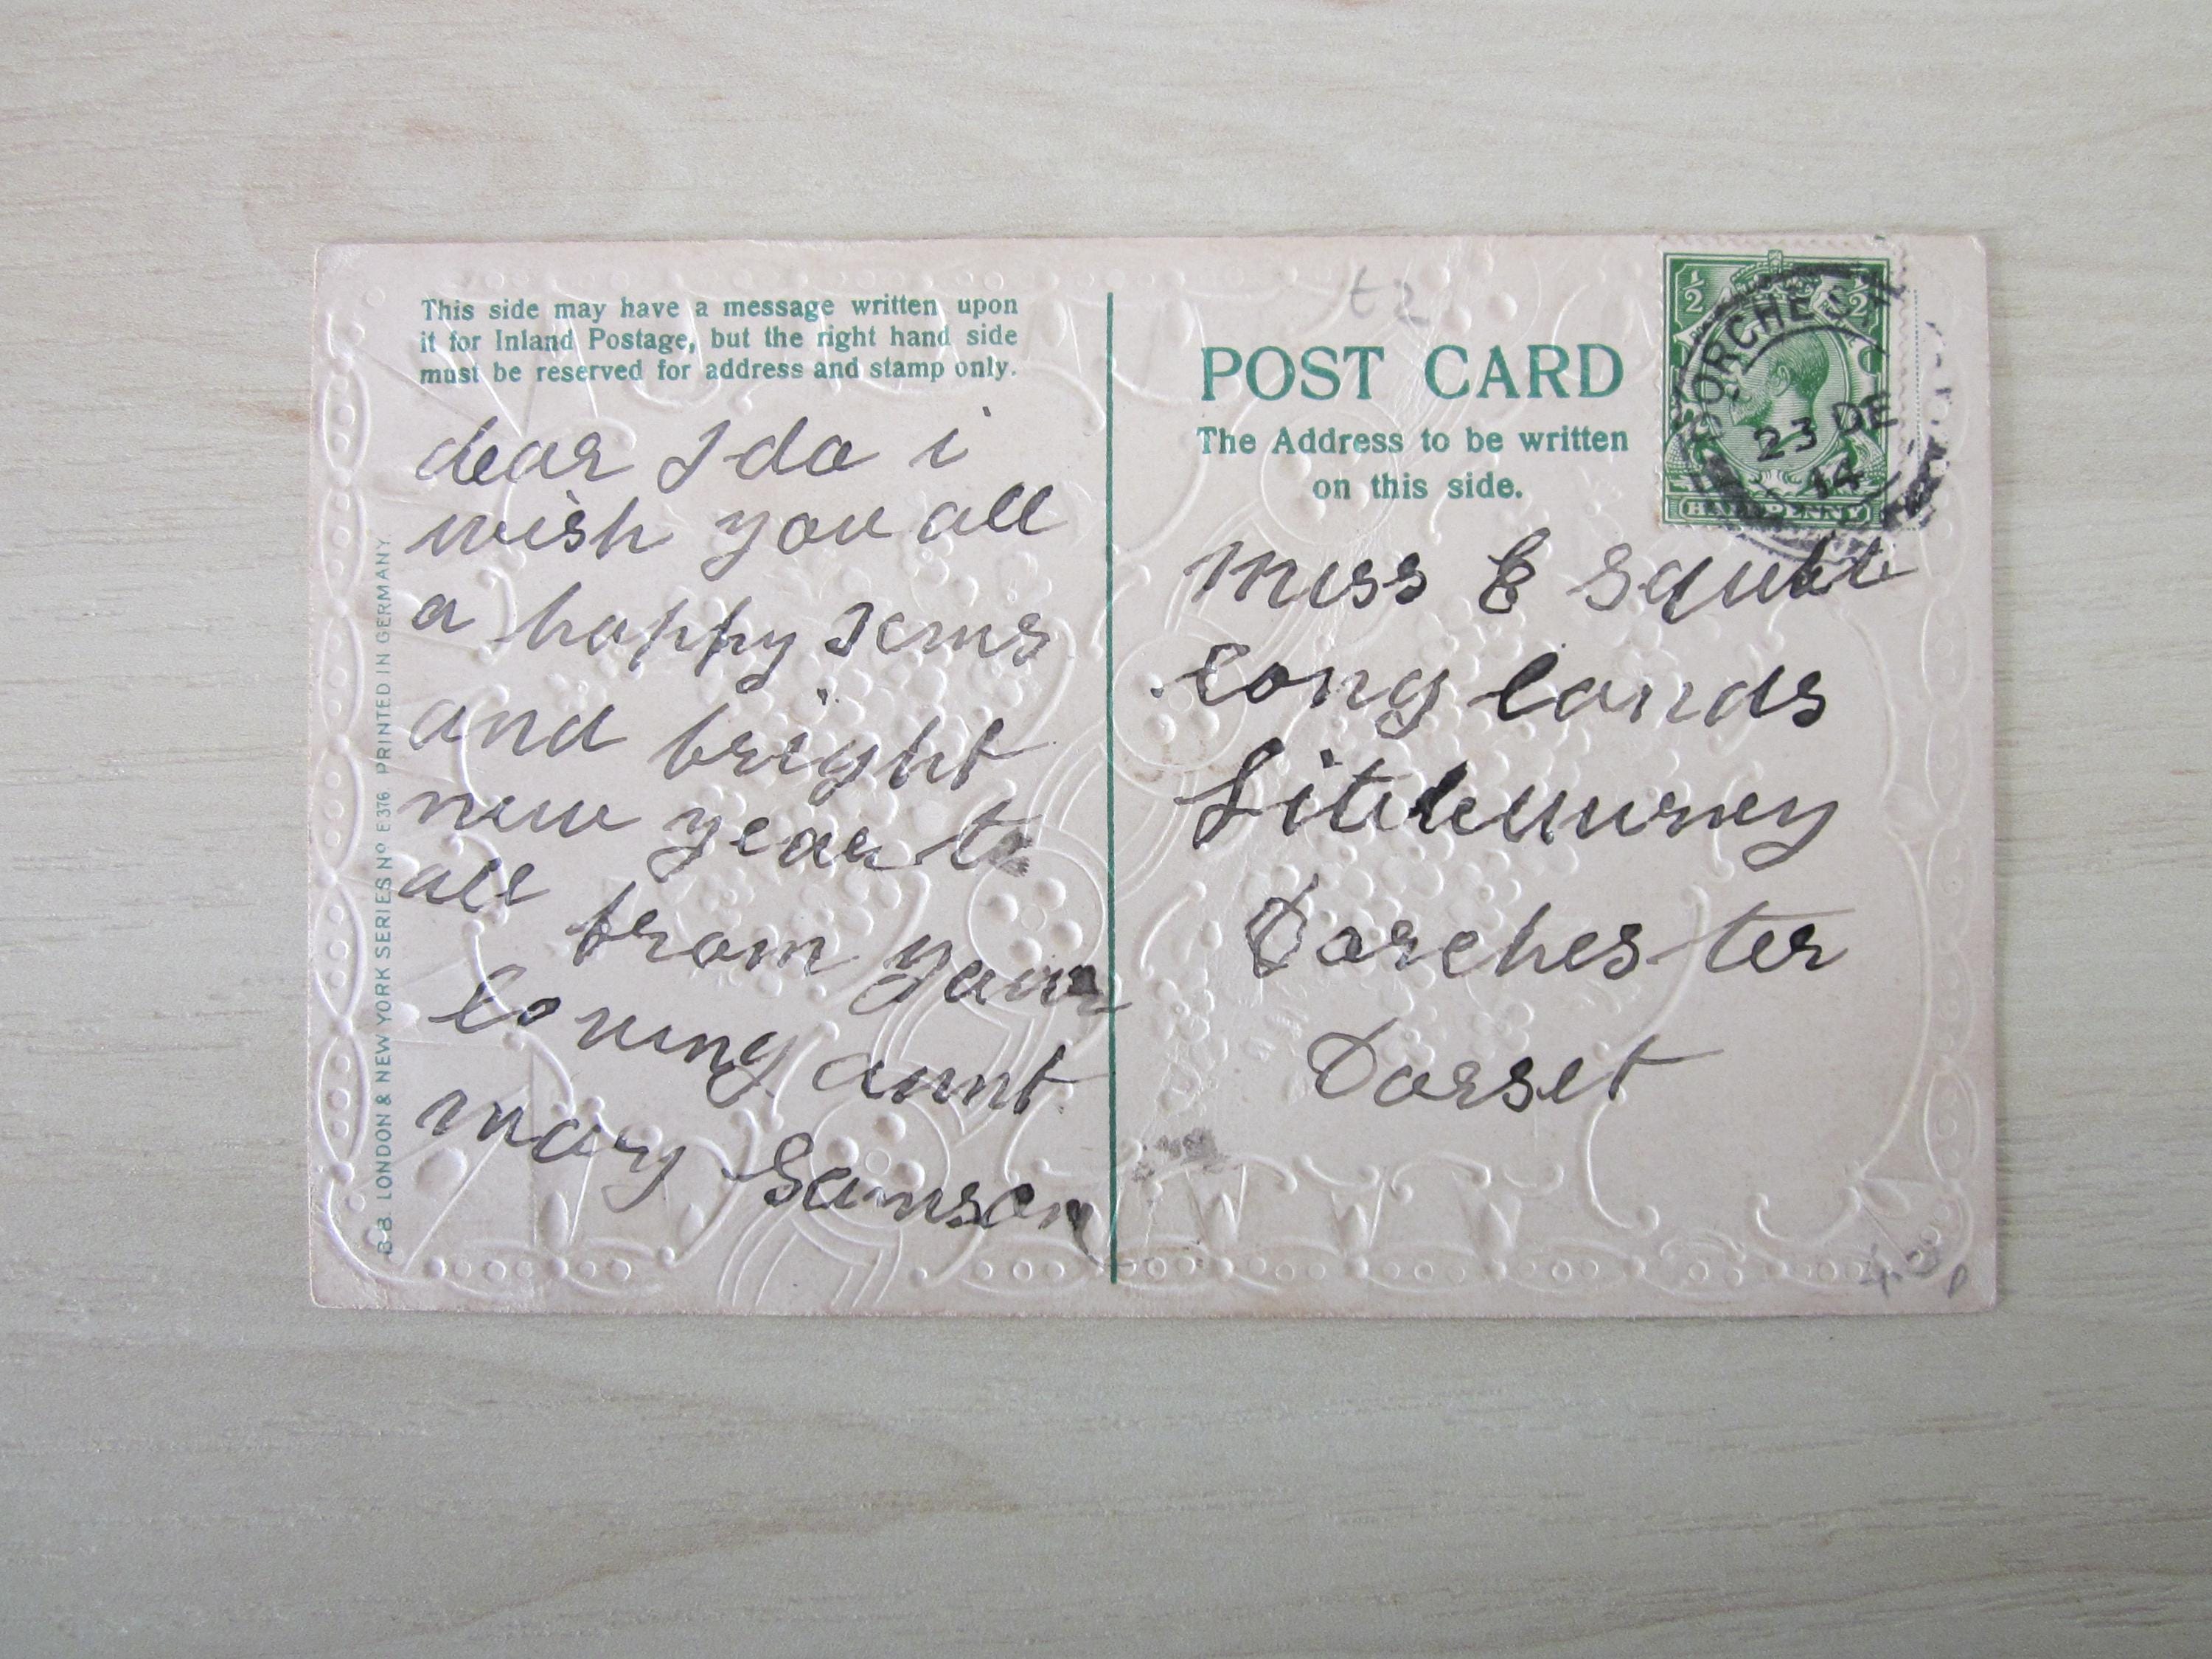 This side may have a message written upon
it for Inland Postage, but the right hand side
must be reserved for address and stamp only.
dear Ida i
wish you all
a happy Xmas
and bright
new year to
all from your
loving aunt
mary Samson
B.B. LONDON & NEW YORK SERIES Nº E376 PRINTED IN GERMANY
t2
POST CARD
The Address to be written
on this side.
½ ½
DORCHEST
23 DE
14
HALFPENNY
Miss E Squibb
Long lands
Dorchester
Dorset